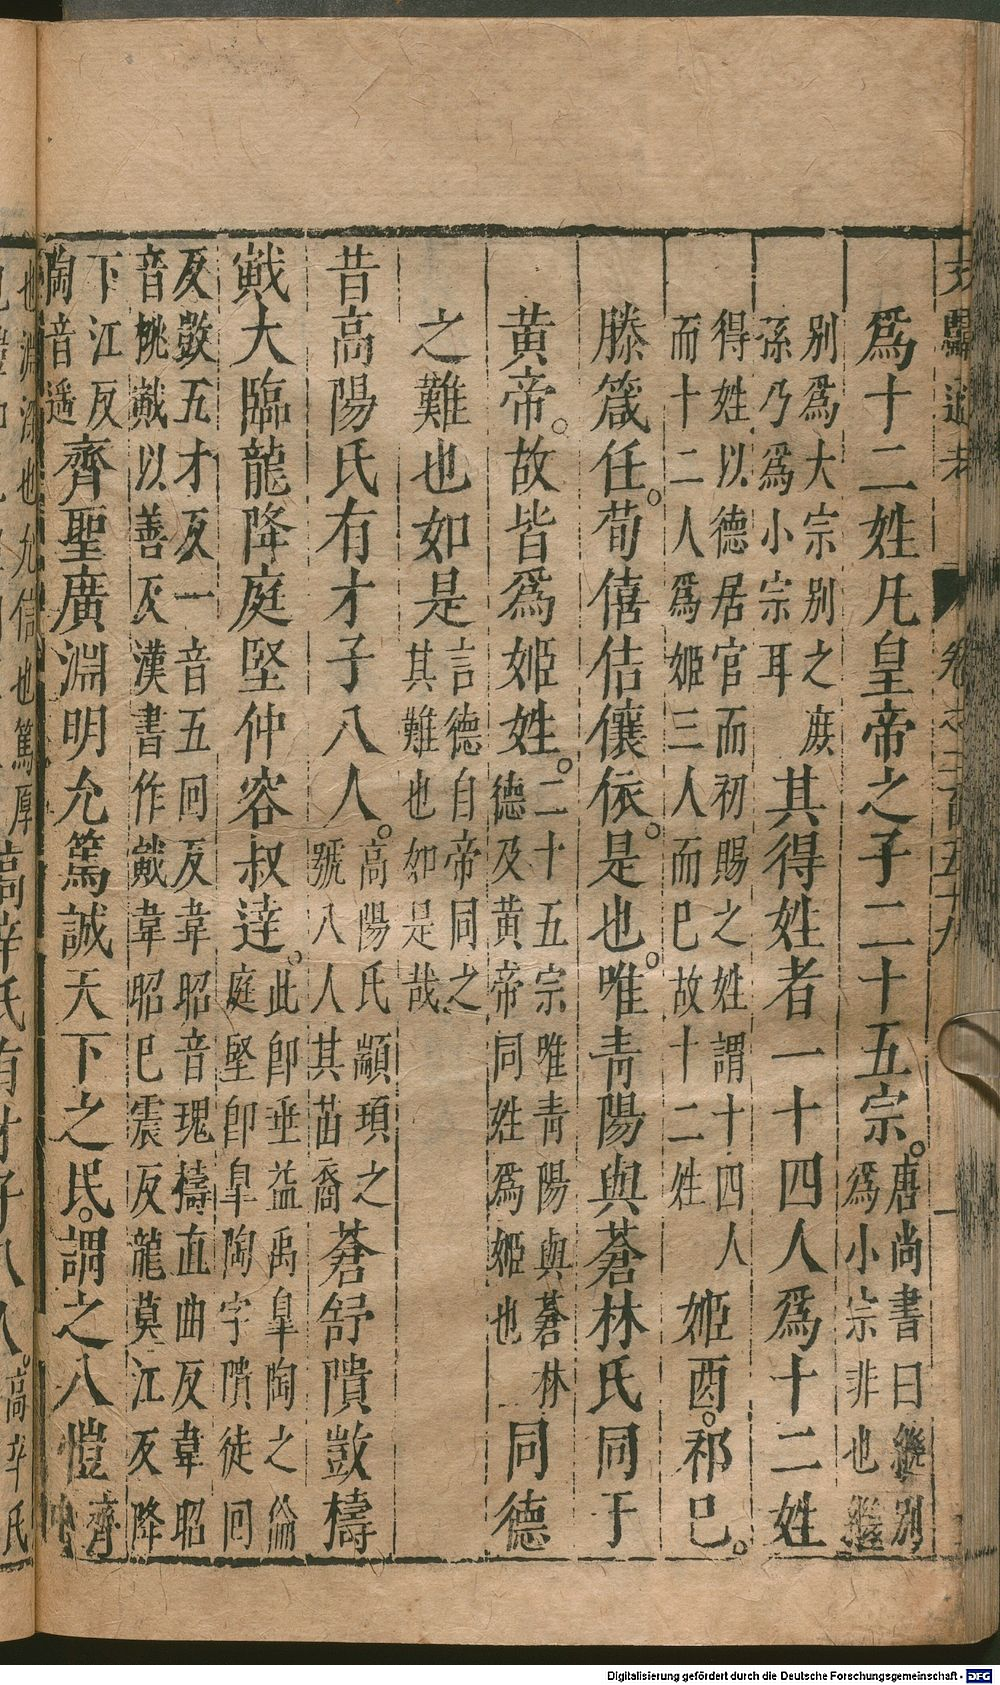 文獻通考 卷之二百五十九 一
爲十二姓凡皇帝之子二十五宗。唐尚書曰繼别
爲小宗非也繼
别爲大宗别之庶
孫乃爲小宗耳其得姓者一十四人爲十二姓
得姓以德居官而初賜之姓謂十四人
而十二人爲姬三人而巳故十二姓姬酉。祁巳。
滕箴任。荀僖佶儇依。是也。唯青陽與蒼林氏同于
黃帝。故皆爲姬姓。二十五宗唯青陽與蒼林
德及黃帝同姓爲姬也同德
之難也如是言德自帝同之
其難也如是哉
昔高陽氏有才子八人。高陽氏顓頊之
號八人其苗裔蒼舒隤敳檮
戭大臨龍降庭堅仲容叔逹。此卽垂益禹皐陶之倫
庭堅卽皐陶字隤徒回
反敳五才反一音五回反韋昭音瑰檮直曲反韋昭
音桃戭以善反漢書作戭韋昭巳震反龍莫江反降
下江反
陶音遥齊聖廣淵明允篤誠天下之民。謂之八愷齊
中
也淵深也允信也篤厚
高辛氏有才子八人。高辛氏
Digitalisierung gefördert durch die Deutsche Forschungsgemeinschaft - DFG